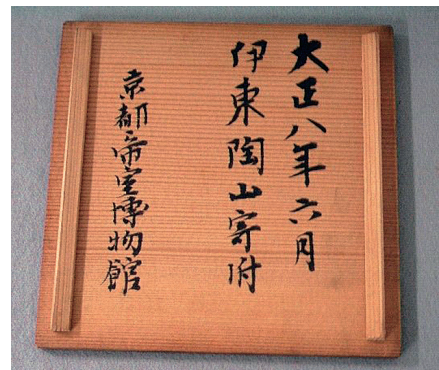 大正八年六月
伊東陶山寄附
京都帝室博物館